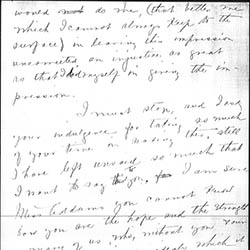 would not do me, (that better one
which I cannot always keep to the
surface) in leaving this impression
uncorrected an injustice as great
as that I did myself in giving the im-
pression.
I must stop, and I ask
your indulgence for taking so much
of your time in reading this, still
I have left unsaid so much that
I want to say to you, I am sure
Miss Addams you cannot know
how you are the hope and the strength
many of us, who, without you
ideals which